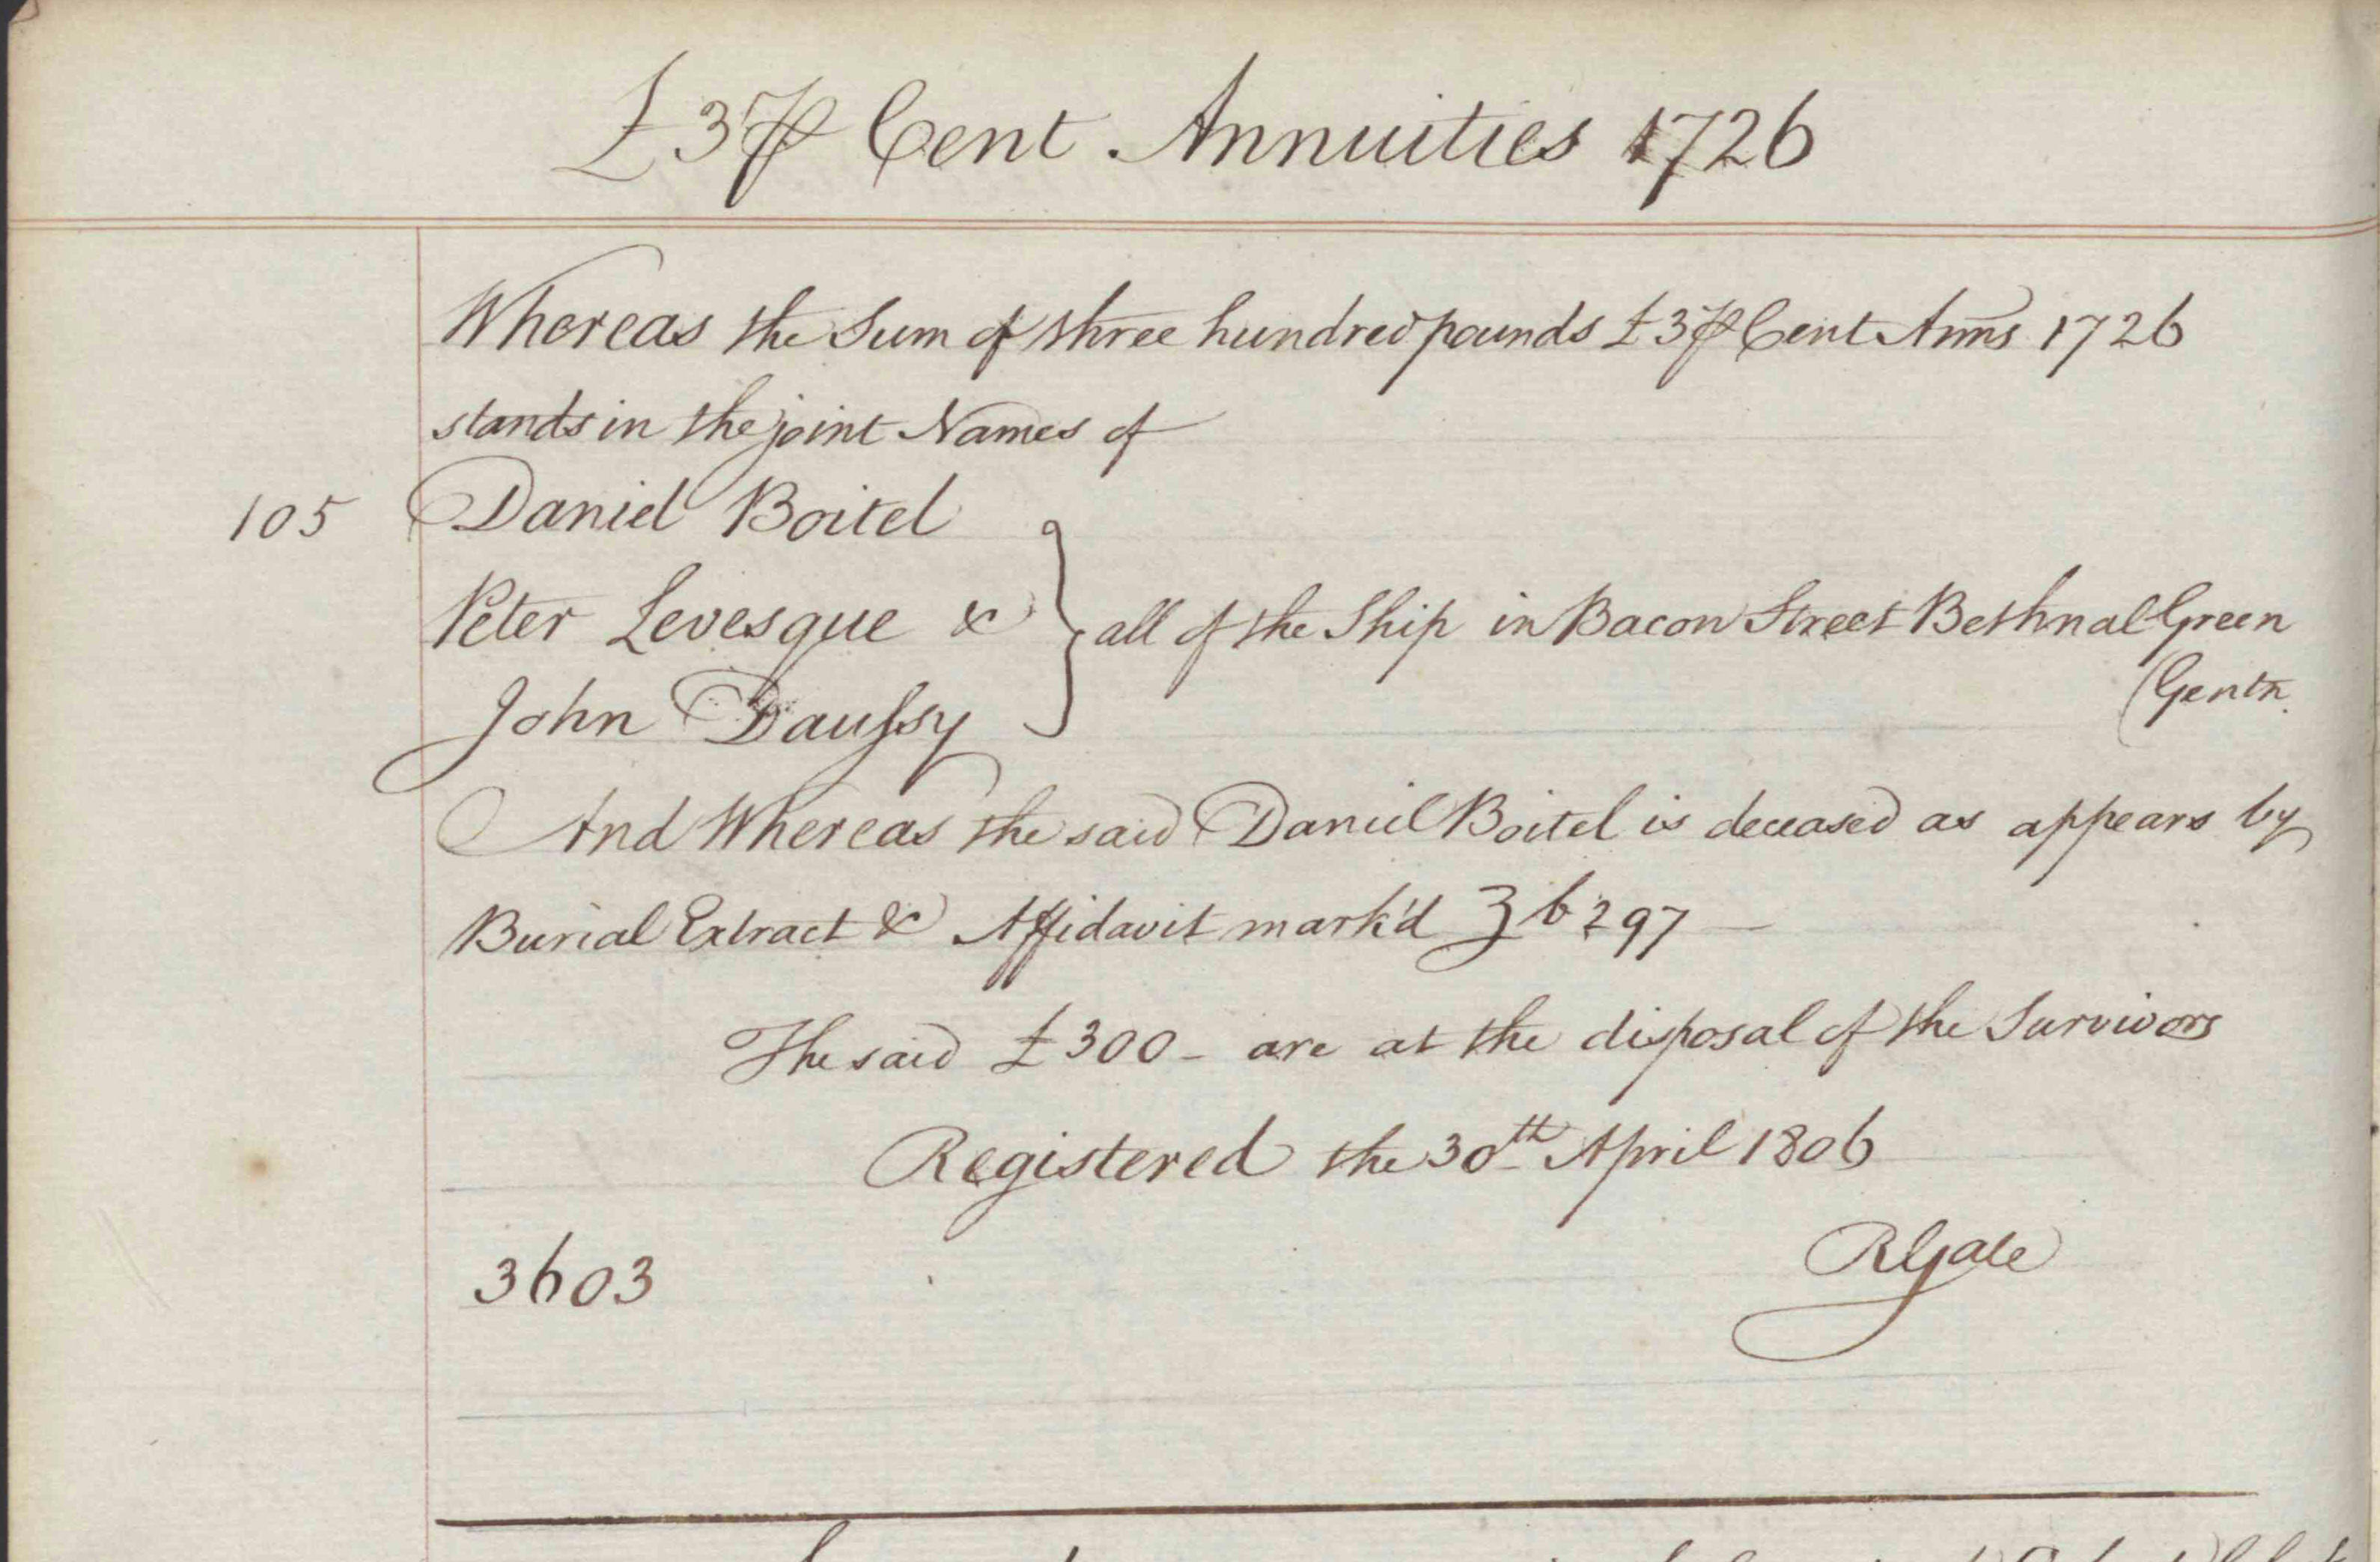 £3 ⅌ Cent Annuities 1726
Whereas the Sum of three hundred pounds £3 ⅌ Cent Anns 1726
stands in the joint Names of
105 Daniel Boitel
Peter Levesque &
all of the Ship in Bacon Street Bethnal Green
(Gentn.
John Daufsy
And Whereas the said Daniel Boitel is deceased as appears by
Burial Extract & Affidavit mark'd 3 b 297 —
The said £300 - are at the disposal of the Survivors
Registered the 30th April 1806
RGale
3603